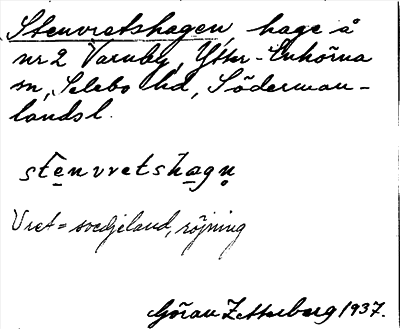 Stenvretshagen, hage å
nr 2 Varnby, Ytter-Enhörna
sn, Selebo hd, Söderman-
lands l.
stenvretshagn
Vret = svedjeland, röjning
Göran Zetterberg 1937.